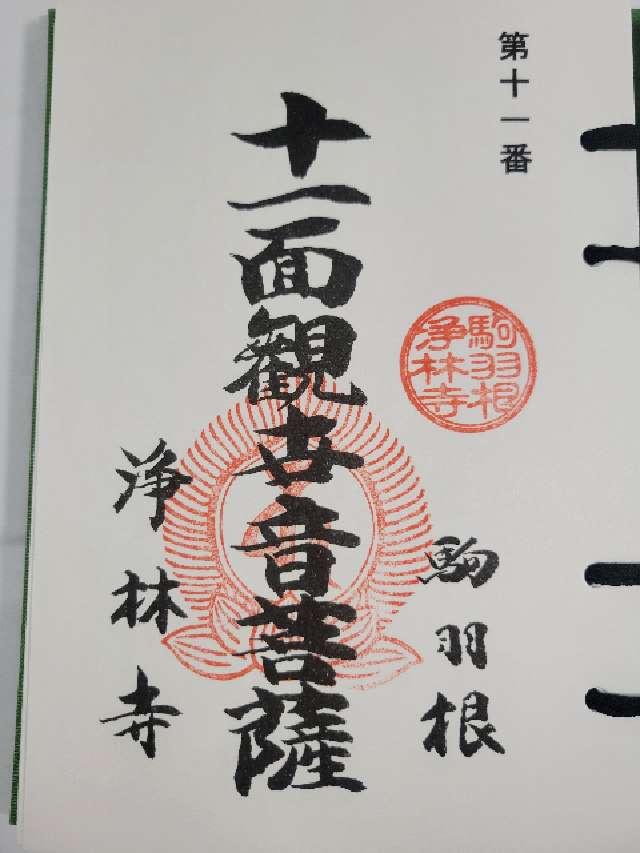 第十一番
駒羽根
浄林寺
駒羽根
十一面観世音菩薩
浄林寺